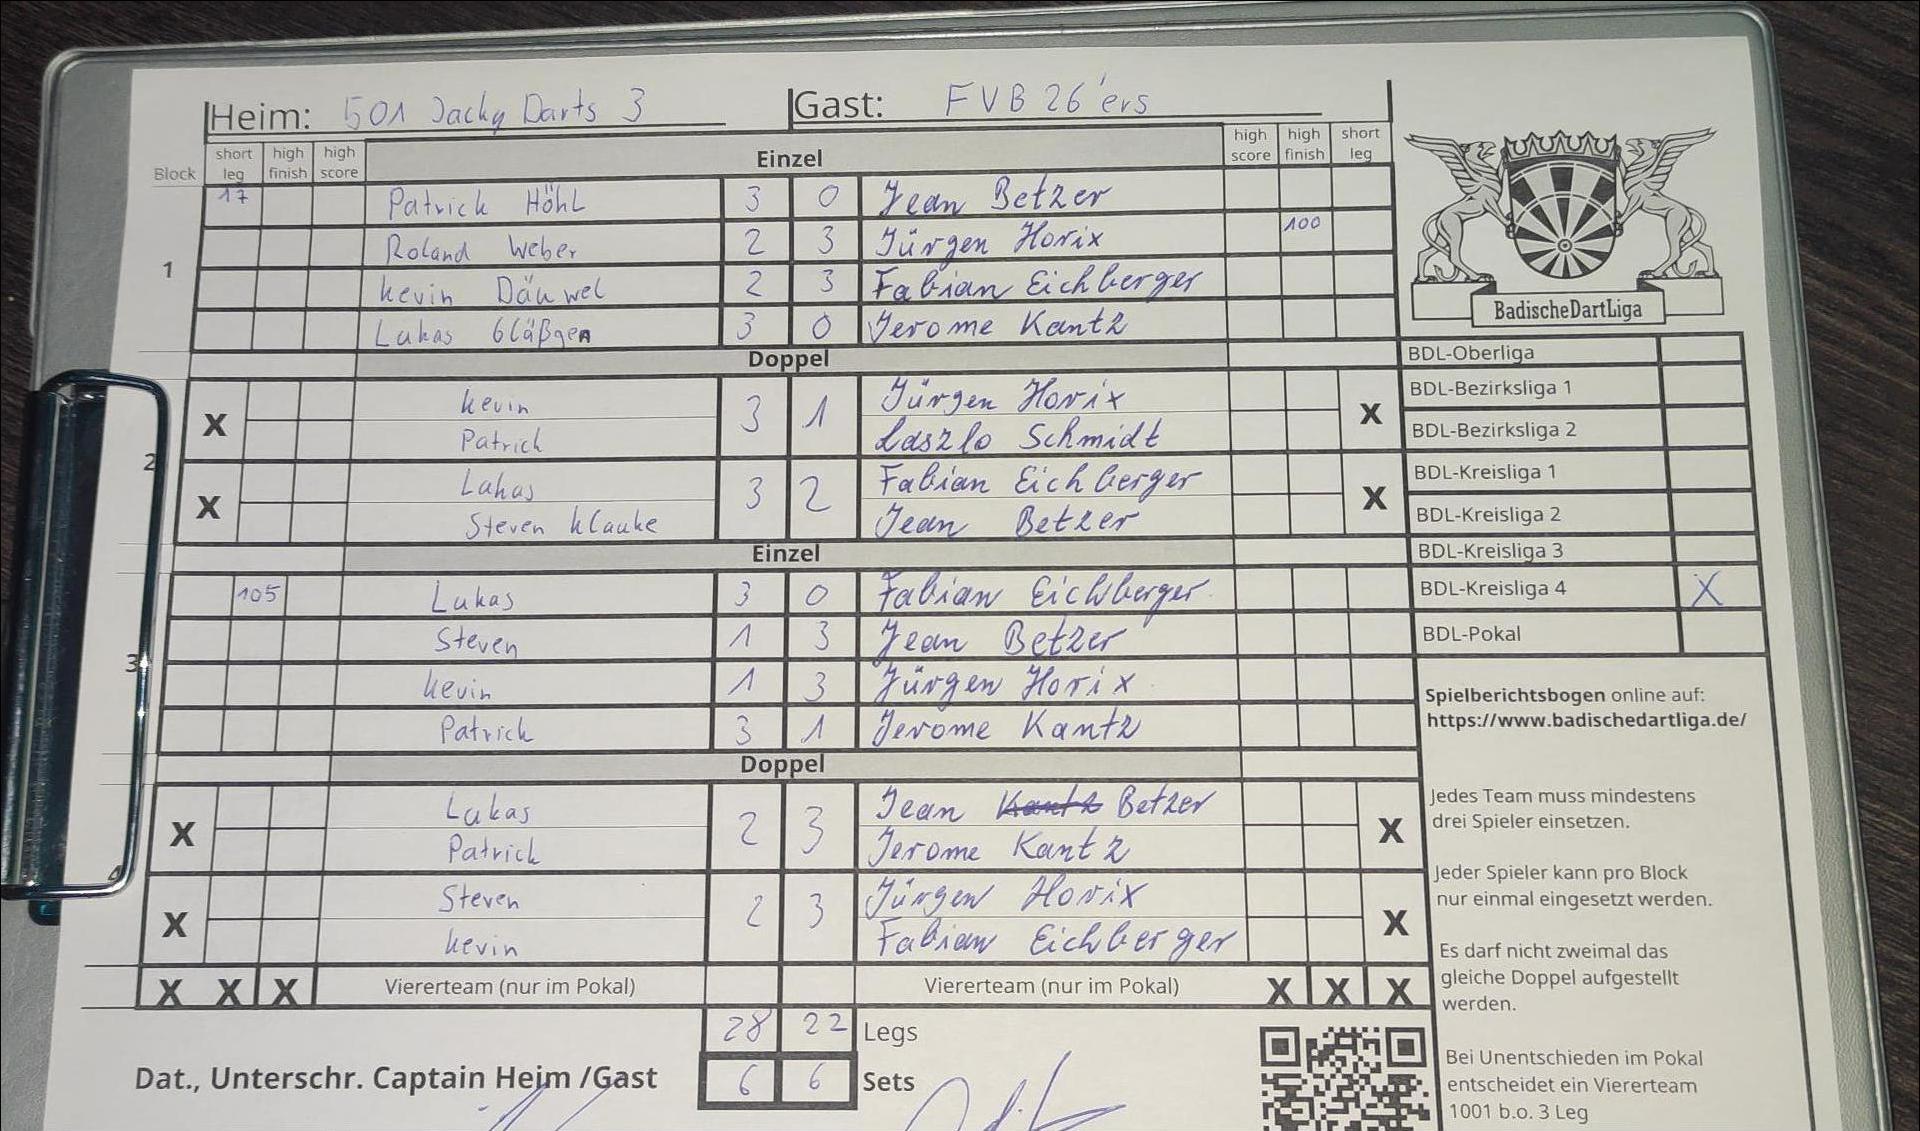 Heim: 501 Jacky Darts 3 Gast: FVB 26'ers
Block short leg high finish high score Einzel high score high finish short leg
17 Patrick Höhl 3 0 Jean Betzer
Roland Weber 2 3 Jürgen Horix 100
1
Kevin Däuwel 2 3 Fabian Eichberger
Lukas Gläßgen 3 0 Jerome Kantz
Doppel
X Kevin 3 1 Jürgen Horix X
Patrick Laszlo Schmidt
2
X Lukas 3 2 Fabian Eichberger X
Steven Klauke Jean Betzer
Einzel
105 Lukas 3 0 Fabian Eichberger
Steven 1 3 Jean Betzer
3
Kevin 1 3 Jürgen Horix
Patrick 3 1 Jerome Kantz
Doppel
X Lukas 2 3 Jean Kantz Betzer X
Patrick Jerome Kantz
4
X Steven 2 3 Jürgen Horix X
Kevin Fabian Eichberger
X X X Viererteam (nur im Pokal) Viererteam (nur im Pokal) X X X
28 22 Legs
Dat., Unterschr. Captain Heim /Gast 6 6 Sets
BadischeDartLiga
BDL-Oberliga
BDL-Bezirksliga 1
BDL-Bezirksliga 2
BDL-Kreisliga 1
BDL-Kreisliga 2
BDL-Kreisliga 3
BDL-Kreisliga 4 X
BDL-Pokal
Spielberichtsbogen online auf:
https://www.badischedartliga.de/
Jedes Team muss mindestens
drei Spieler einsetzen.
Jeder Spieler kann pro Block
nur einmal eingesetzt werden.
Es darf nicht zweimal das
gleiche Doppel aufgestellt
werden.
Bei Unentschieden im Pokal
entscheidet ein Viererteam
1001 b.o. 3 Leg